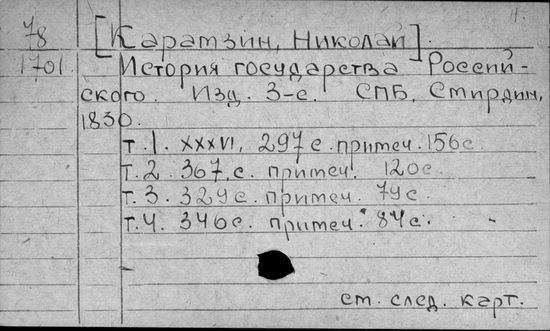 78 [Карамзин, Николай].
1701. История государства Россий-
ского. Изд. 3-е. СПБ, Смирдин,
1830.
т. 1. XXXVI, 297 с. примеч. 156 с.
т. 2. 367 с. примеч. 120 с.
т. 3. 329 с. примеч. 79 с.
т. 4. 346 с. примеч. 84 с.
см. след. карт.